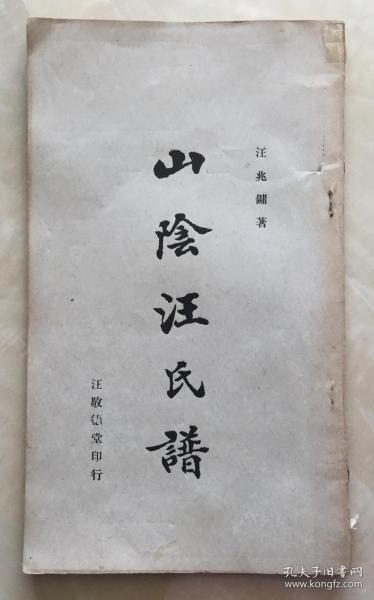 汪兆鏞著
山陰汪氏譜
汪敬德堂印行
孔夫子旧书网
www.kongfz.com